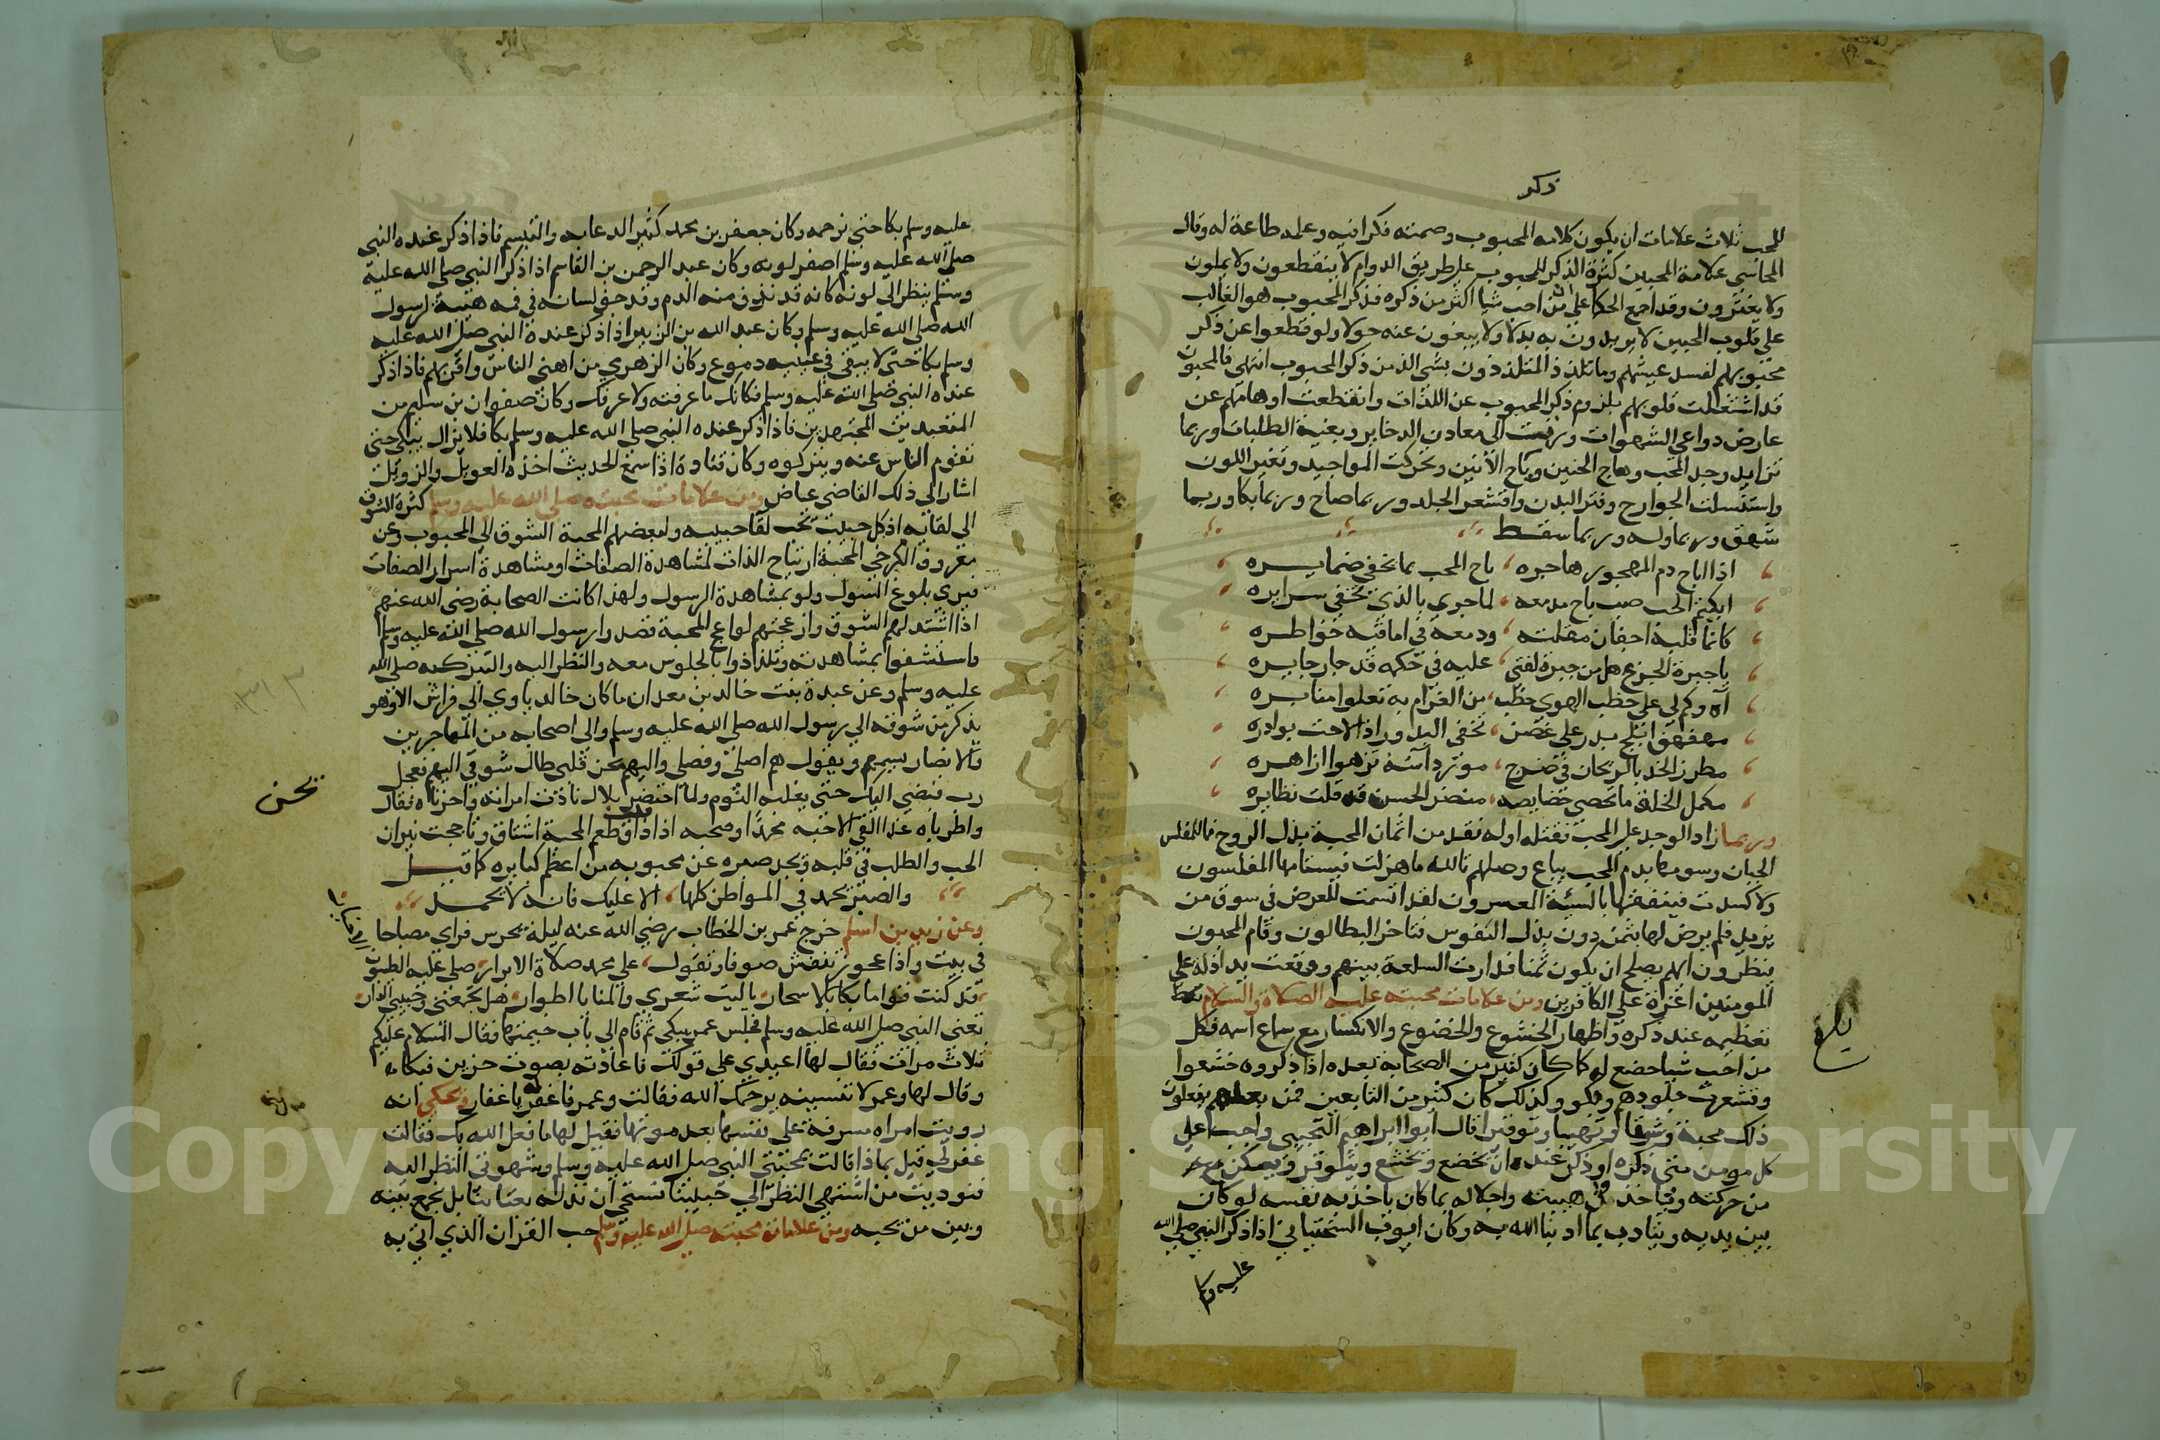 ذكر
للمحب ثلاث علامات ان يكون كلامه المحبوب وصمته فكرا فيه وعمله طاعة له وقال
المحاسبي علامة المحبين كثرة الذكر للمحبوب علي طريق الدوام لا ينقطعون ولا يملون
ولا يفترون وقد اجمع الحكما علي ان من احب شيا اكثر من ذكره فذكر المحبوب هو الغالب
علي قلوب المحبين لا يريدون به بدلا ولا يبغون عنه حولا ولو قطعوا عن ذكر
محبوبهم لفسد عيشهم وما تلذذ المتلذذون بشي الذ من ذكر المحبوب انتهي فالمحبون
قد اشتغلت قلوبهم بلزوم ذكر المحبوب عن اللذات وانقطعت اوهامهم عن
عارض دواعي الشهوات ورقت الي معادن الدخاير وبغية الطلبات وربما
تزايد وجد المحب وهاج الحنين وباح الانين وتحركت المواجيد وتغير اللون
واستبسلت الجوارح وفتر البدن واقشعر الجلد وربما صاح وربما بكا وربما
شهق وربما وله وربما سقط
اذا اباح دم المهجور هاجره باح المحب بما تخفي ضمايره
ايكتم الحب صب باح مدمعه لما جري بالذي تخفي سرايره
كانما قلبه اجفان مقلته ودمعه في اماقيه خواطره
يا جيرة الجزع هل من جيرة لفتي عليه في حكمه قد جار جايره
آه وكم لي علي خطب الهوي خطب من الغرام به تعلوا منابره
مهفهف ابلج بدر علي غصن تخفي البدور اذا لاحت بوادره
مطرز الخد بالريحان في ضرج مورد آسه تزهوا ازاهره
مكمل الخلق ما تحصي خصايصه منضر الحسن قد قلت نظايره
وربما زاد الوجد علي المحب فقتله اوله نقد من اثمان المحبة بذل الروح فما للمفلس
الجبان وسومها بدم المحب يباع وصلهم تالله ما هزلت فيستامها المفلسون
ولا كسدت فينفقها بالنسيئة المعسرون لقد اقيمت للعرض في سوق من
يزيد فلم يرض لها بثمن دون بذل النفوس فتاخر البطالون وقام المحبون
ينظرون ايهم يصلح ان يكون ثمنا فدارت السلعة بينهم ووقعت يد اذلة علي
المومنين اعزة علي الكافرين ومن علامات محبته عليه الصلاة والسلام
تعظيمه عند ذكره واظهار الخشوع والخضوع والانكسار مع سماع اسمه فكل
من احب شيا خضع له كما كان كثير من الصحابة بعده اذا ذكروه خشعوا
واقشعرت جلودهم وبكوا وكذلك كان كثير من التابعين فمن بعدهم يفعلون
ذلك محبة وشوقا او تهيبا وتوقيرا قال ابو ابراهيم التجيبي واجب علي
كل مومن متي ذكره او ذكر عنده ان يخضع ويخشع ويتوقر ويسكن
من حركته وياخذ في هيبته واجلاله بما كان ياخذ به نفسه لو كان
بين يديه ويتادب بما ادبنا الله به وكان ايوب السختياني اذا ذكر النبي صلي الله
عليه وسلم
بلغ
عليه وسلم بكا حتي نرحمه وكان جعفر بن محمد كثير الدعابه والتبسم فاذا ذكر عنده النبي
صلي الله عليه وسلم اصفر لونه وكان عبد الرحمن بن القاسم اذا ذكر النبي صلي الله عليه
وسلم ينظر الي لونه كانه قد نزف منه الدم وقد جف لسانه في فيه هيبة لرسول
الله صلي الله عليه وسلم وكان عبد الله بن الزبير اذا ذكر عنده النبي صلي الله عليه
وسلم بكا حتي لا يبقي في عينيه دموع وكان الزهري من اهني الناس واقربهم فاذا ذكر
عنده النبي صلي الله عليه وسلم فكانك ما عرفته ولا عرفك وكان صفوان بن سليم من
المتعبدين المجتهدين فاذا ذكر عنده النبي صلي الله عليه وسلم بكا فلا يزال يبكي حتي
تقوم الناس عنه ويتركوه وكان قتادة اذا سمع الحديث اخذه العويل والزويل
اشار الي ذلك القاضي عياض ومن علامات محبته صلي الله عليه وسلم كثرة الشوق
الي لقايه اذ كل حبيب يحب لقا حبيبه ولبعضهم المحبة الشوق الي المحبوب وعن
معروف الكرخي المحبة ارتياح الذات لمشاهدة الصفات او مشاهدة اسرار الصفات
فيري بلوغ السول ولو بمشاهدة الرسول ولهذا كانت الصحابة رضي الله عنهم
اذا اشتد لهم الشوق وازعجتهم لواعج المحبة قصدوا رسول الله صلي الله عليه وسلم
واستشفوا بمشاهدته وتلذذوا بالجلوس معه والنظر اليه والتبرك به صلي الله
عليه وسلم وعن عبدة بنت خالد بن معدان ما كان خالد ياوي الي فراش الا وهو
يذكر من شوقه الي رسول الله صلي الله عليه وسلم والي اصحابه من المهاجرين
والانصار يسميهم ويقول هم اصلي وفصلي واليهم يحن قلبي طال شوقي اليهم فعجل
رب قبضي اليك حتي يغلبه النوم ولما احتضر بلال نادت امراته واحزناه فقال
واطرباه غدا القي الاحبه محمدا وصحبه اذا ذاق طعم المحبة اشتاق وتاججت نيران
الحب والطلب في قلبه ويجد صبره عن محبوبه من اعظم كبايره كما قيل
والصبر يحمد في المواطن كلها الا عليك فانه لا يحمد
وعن زيد بن اسلم خرج عمر بن الخطاب رضي الله عنه ليلة يحرس فراي مصباحا
في بيت واذا عجوز تنفش صوفا وتقول علي محمد صلاة الابرار صلي عليه الطيبون
قد كنت قواما بكا بالاسحار يا ليت شعري والمنايا اطوار هل تجمعني وحبيبي الدار
تعني النبي صلي الله عليه وسلم فجلس عمر يبكي ثم قام الي باب خيمتها فقال السلام عليكم
ثلاث مرات فقال لها اعيدي علي قولك فاعادته بصوت حزين فبكا
وقال لها وعمر لا تنسيه يرحمك الله فقالت وعمر فاغفر له يا غفار ويحكي انه
رويت امراه مسرفة علي نفسها بعد موتها فقيل لها ما فعل الله بك فقالت
غفر لي قيل بماذا قالت بمحبتي النبي صلي الله عليه وسلم وشهوتي النظر اليه
فنوديت من اشتهي النظر الي حبيبنا نستحي ان نذله بعتابنا بل نجمع بينه
وبين من يحبه ومن علامات محبته صلي الله عليه وسلم حب القران الذي اتي به
يحن